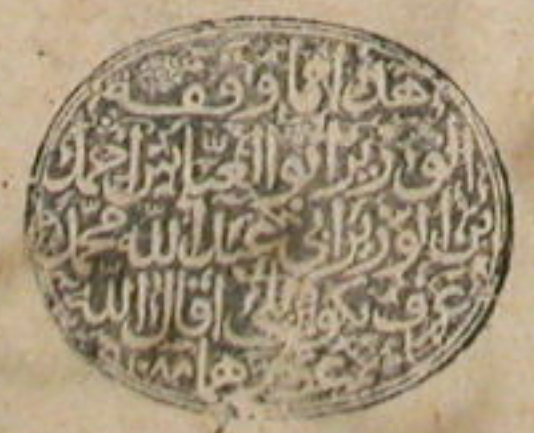 هذا مما وقفه
الوزير ابو العباس احمد
بن الوزير ابي عبد الله محمد
عرف بكوبرلي اقال الله
عثارهما ١٠٨٨